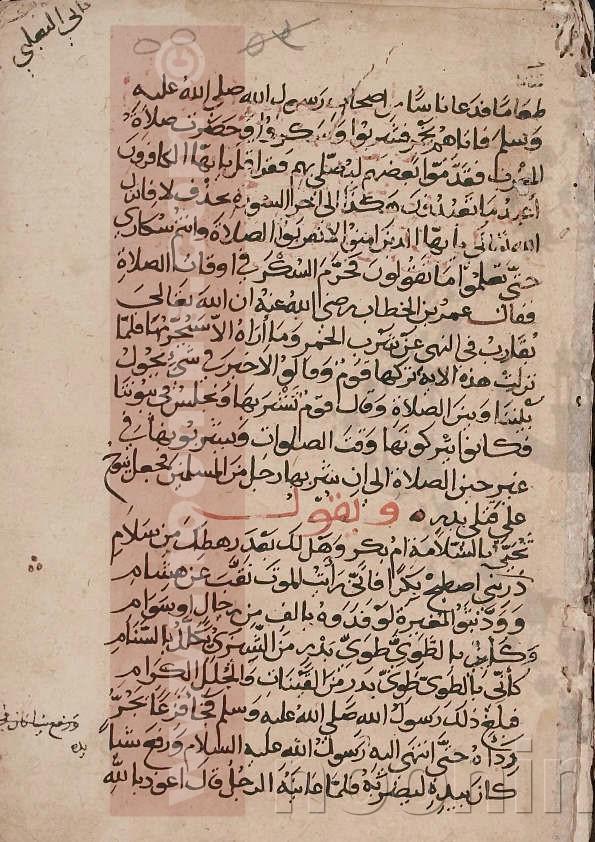 الى الثعلبي
طعاما فدعا ناسا من اصحاب رسول الله صلى الله عليه
وسلم فاتاهم بخمر فشربوا وسكروا وحضرت صلاة
المغرب فقدموا بعضهم ليصلي بهم فقرا قل يا ايها الكافرون
اعبد ما تعبدون هكذا الى اخر السورة بحذف لا فانزل
الله تعالى يا ايها الذين امنوا لا تقربوا الصلاة وانتم سكارى
حتى تعلموا ما تقولون فحرم السكر في اوقات الصلاة
فقال عمر بن الخطاب رضي الله عنه ان الله تعالى
تقارب في النهي عن شرب الخمر وما اراه الا سيحرمها فلما
نزلت هذه الاية تركها قوم وقالوا لا خير في شي يحول
بيننا وبين الصلاة وقال قوم نشربها ونجلس في بيوتنا
فكانوا يتركونها وقت الصلوات ويشربونها في
غير حين الصلاة الى ان شربها رجل من المسلمين فجعل ينوح
على قتلى بدر ويقول
تحيى بالسلامة ام بكر وهل لك بعد رهطك من سلام
ذريني اصطبح بكرا فاني رايت الموت نقب عن هشام
وود بنو المغيرة لو فدوه بالف من رجال او سوام
وكاين بالطوي طوي بدر من الشيزى يكلل بالسنام
كاني بالطوي طوي بدر من الفتيان والحلل الكرام
فبلغ ذلك رسول الله صلى الله عليه وسلم فجا فزعا يجر
رداه حتى انتهى اليه رسول الله عليه السلام ورفع شيا
كان بيده ليضربه فلما عاينه الرجل قال اعوذ بالله
ورفع شيا كان في
يده